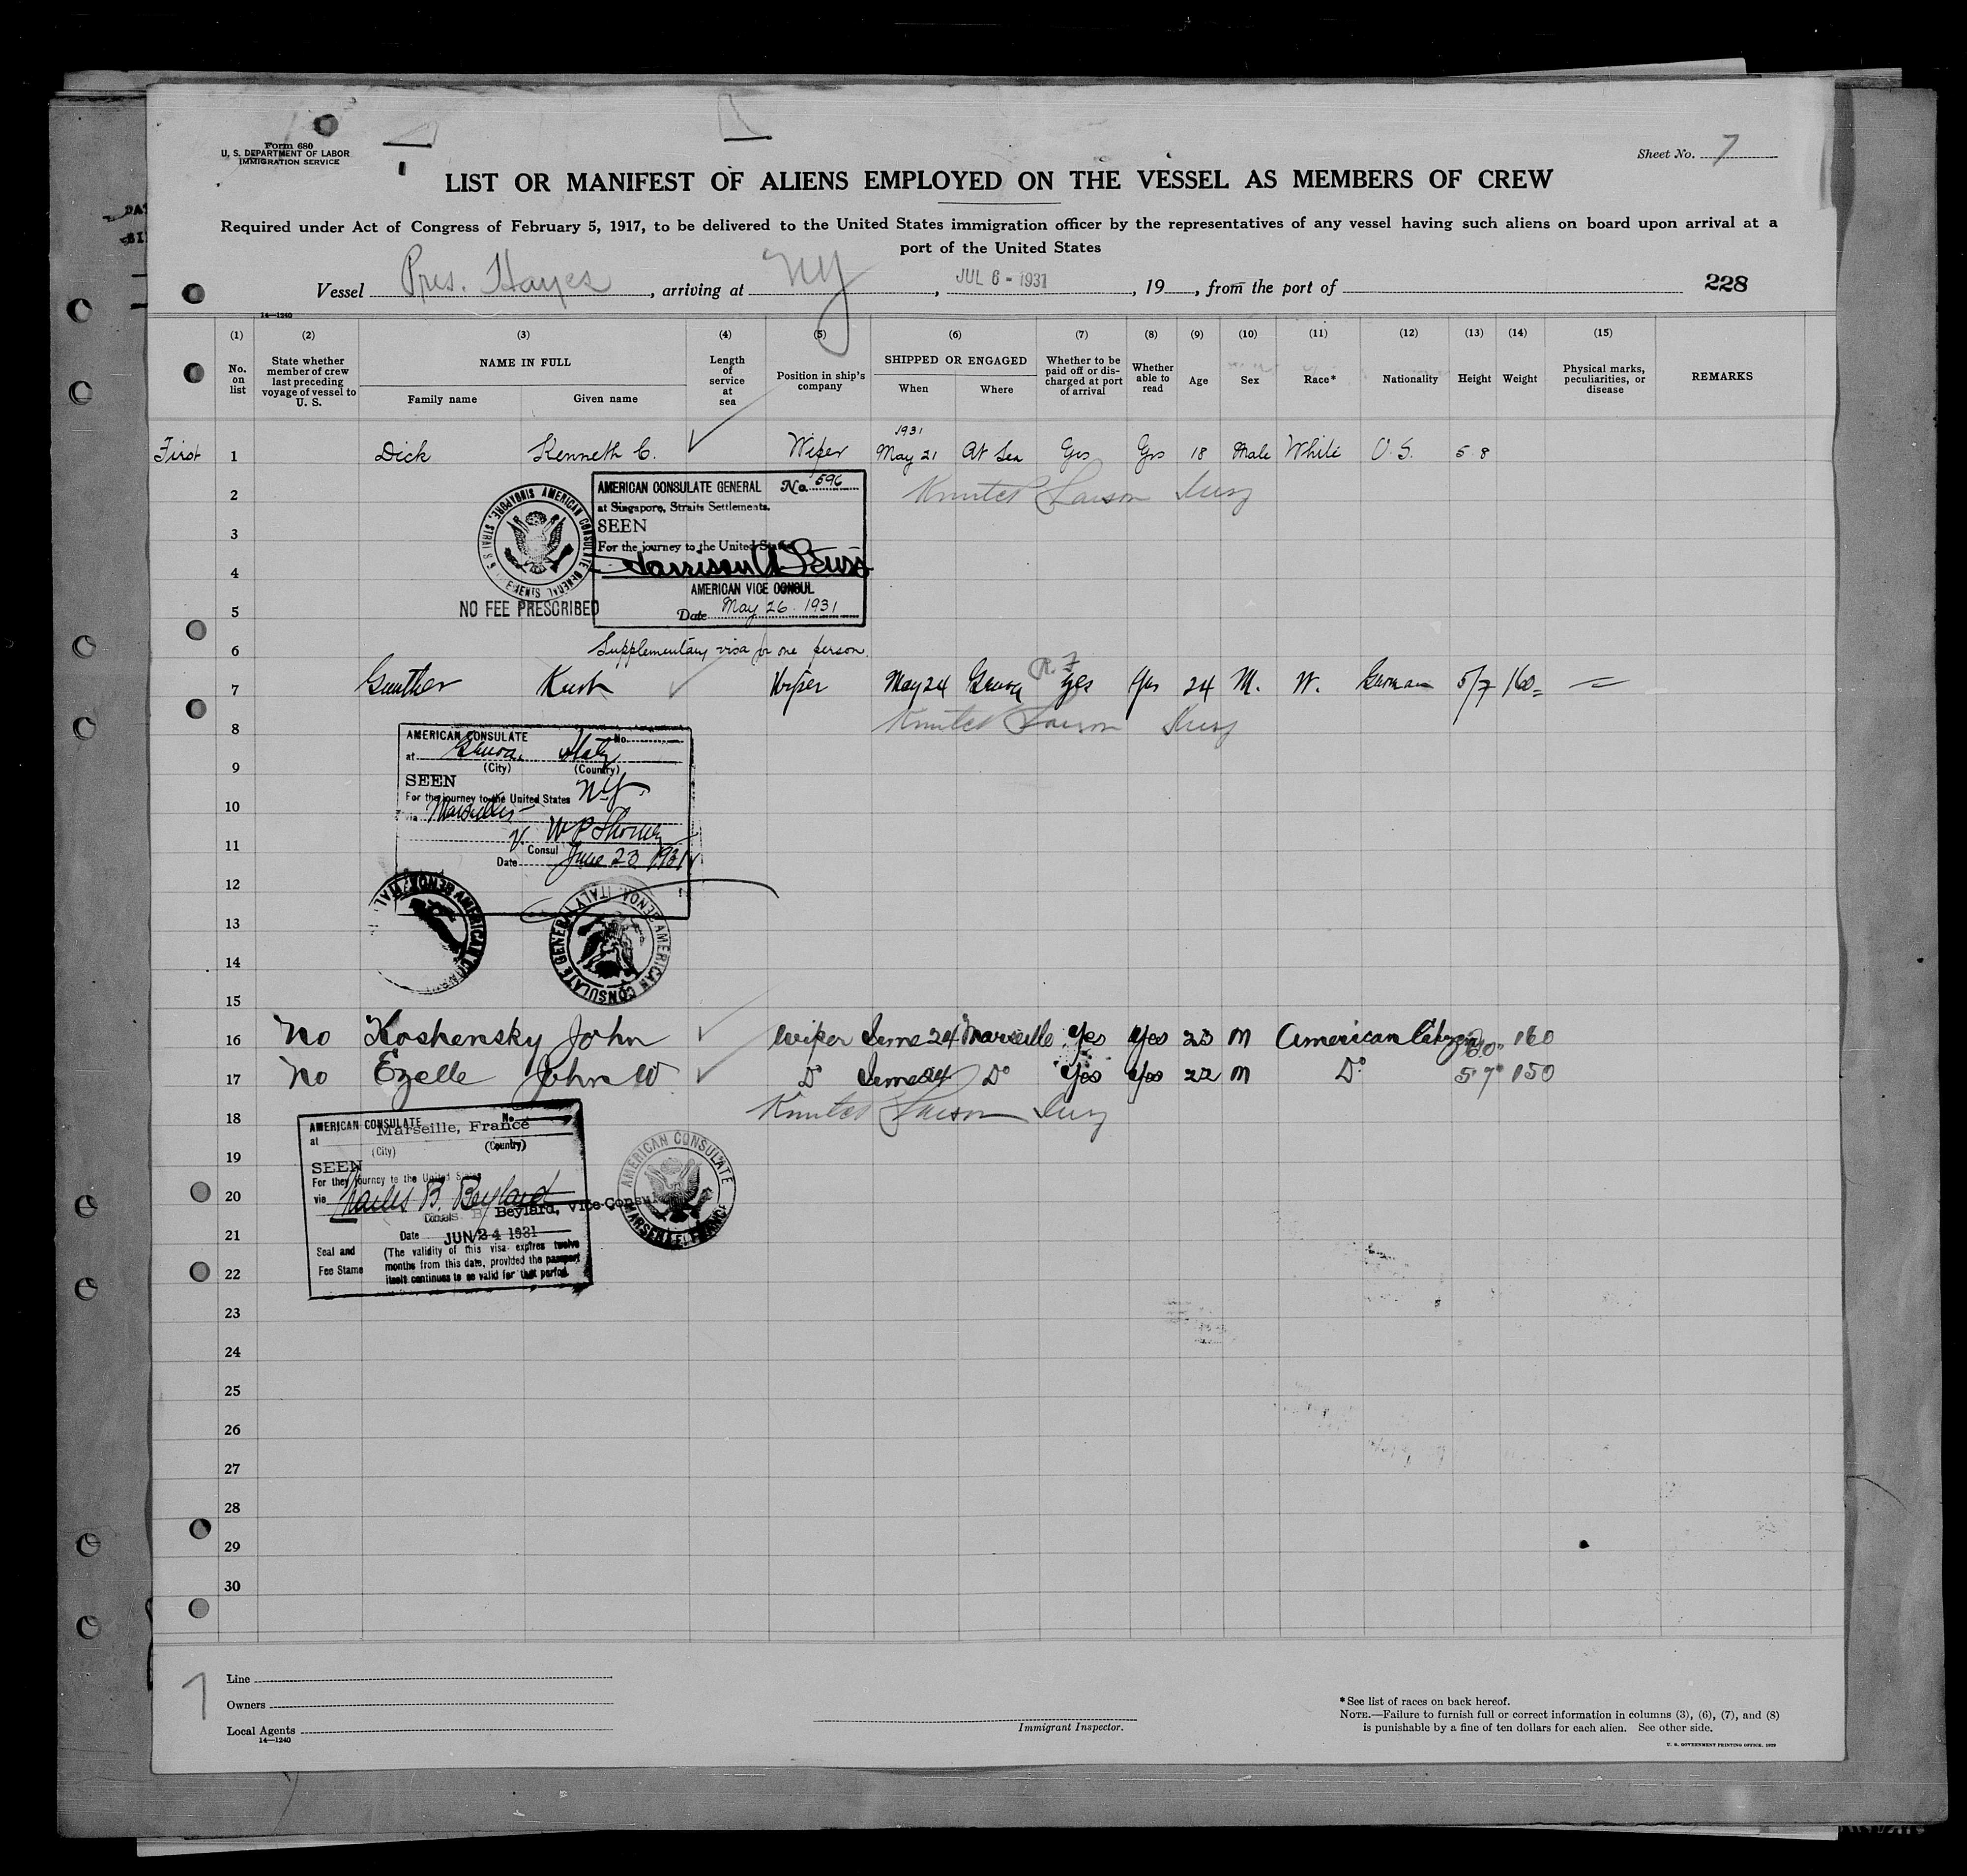 Form 680
U. S. DEPARTMENT OF LABOR
IMMIGRATION SERVICE
Sheet No. 7
LIST OR MANIFEST OF ALIENS EMPLOYED ON THE VESSEL AS MEMBERS OF CREW
Required under Act of Congress of February 5, 1917, to be delivered to the United States immigration officer by the representatives of any vessel having such aliens on board upon arrival at a
port of the United States
Vessel Pres. Hayes, arriving at NY, JUL 6 - 1931, 19, from the port of
228
14—1240
(1) (2) (3) (4) (5) (6) (7) (8) (9) (10) (11) (12) (13) (14) (15)
No. on list
State whether member of crew last preceding voyage of vessel to U. S.
NAME IN FULL
Family name
Given name
Length of service at sea
Position in ship's company
SHIPPED OR ENGAGED
When
Where
Whether to be paid off or discharged at port of arrival
Whether able to read
Age
Sex
Race*
Nationality
Height
Weight
Physical marks, peculiarities, or disease
REMARKS
1931
First 1 Dick Kenneth C. Wiper May 21 At Sea Yes Yes 18 Male White U.S. 5 8
2
3
4
5
6
AMERICAN CONSULATE GENERAL No. 596
at Singapore, Straits Settlements.
SEEN
For the journey to the United States
AMERICAN VICE CONSUL
Date May 26. 1931
NO FEE PRESCRIBED
Supplementary visa for one person.
7 Gunther Kurt Wiper May 24 Genoa Yes Yes 24 M. W. German 5/7 160
8
9
10
11
12
13
14
15
AMERICAN CONSULATE No.
at Genoa, Italy
(City) (Country)
SEEN
For the journey to the United States NY
via Marseilles
V. Consul
Date June 23 1931
AMERICAN CONSULATE GENERAL GENOA, ITALY
16 No Koshensky John Wiper June 24 Marseille Yes Yes 23 M American Citizen 160
17 No Ezelle John W Do June 24 Do Yes Yes 22 M Do 5 7" 150
18
19
20
21
22
AMERICAN CONSULATE No.
at Marseille, France
(City) (Country)
SEEN
For the journey to the United States
via Charles B. Beylard
Beylard, Vice Consul
Date JUN 24 1931
Seal and Fee Stamp
(The validity of this visa expires twelve
months from this date, provided the passport
itself continues to be valid for that period.
AMERICAN CONSULATE MARSEILLE, FRANCE
23
24
25
26
27
28
29
30
7
Line
Owners
Local Agents
14—1240
Immigrant Inspector.
*See list of races on back hereof.
NOTE.—Failure to furnish full or correct information in columns (3), (6), (7), and (8)
is punishable by a fine of ten dollars for each alien. See other side.
U. S. GOVERNMENT PRINTING OFFICE. 1929